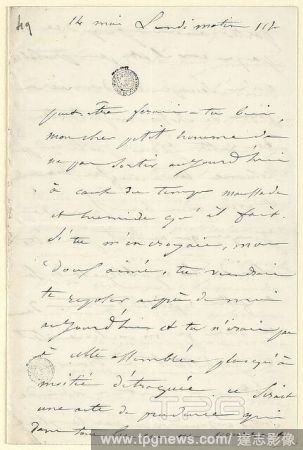 49
14 mai Lundi matin 11h
peut-être ferais-tu bien,
mon cher petit homme de
ne pas sortir aujourd'hui
à cause du temps maussade
et humide qu'il fait.
Si tu m'en croyais, mon
doux aimé, tu viendrais
te reposer auprès de moi
aujourd'hui et tu n'irais pas
à cette assemblée plus qu'à
moitié détraquée ce serait
une acte de prudence qui
dans tous les
TPG
www.tpgnews.com/達志影像